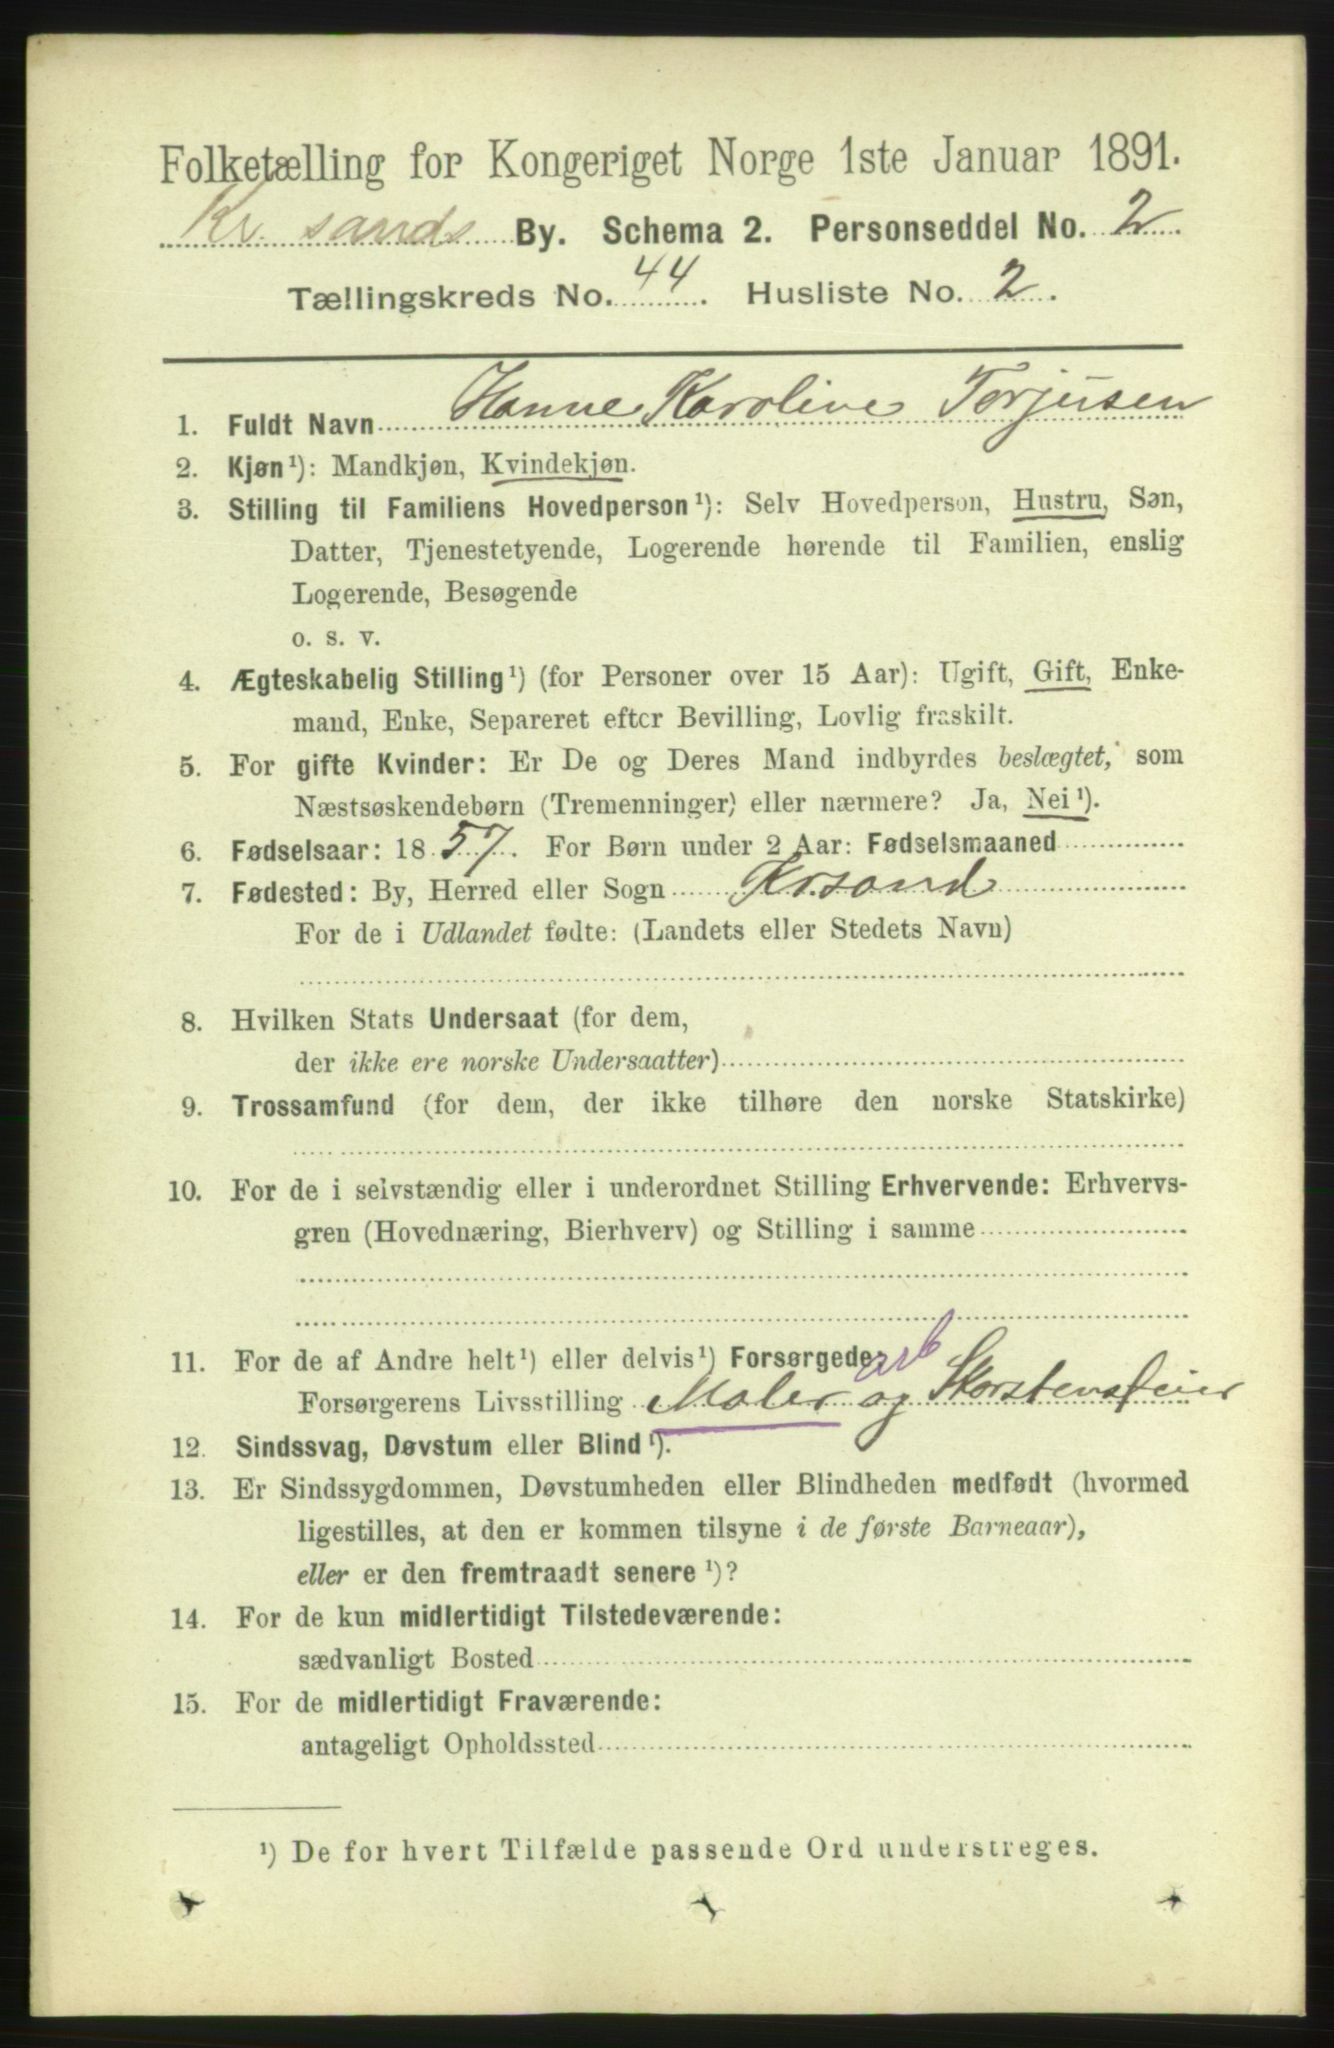 Folketælling for Kongeriget Norge 1ste Januar 1891.
Kr. sands By. Schema 2. Personseddel No. 2
Tællingskreds No. 44. Husliste No. 2.
1. Fuldt Navn Hanne Karoline Torjusen
2. Kjøn¹): Mandkjøn, Kvindekjøn.
3. Stilling til Familiens Hovedperson¹): Selv Hovedperson, Hustru, Søn,
Datter, Tjenestetyende, Logerende hørende til Familien, enslig
Logerende, Besøgende
o. s. v.
4. Ægteskabelig Stilling¹) (for Personer over 15 Aar): Ugift, Gift, Enke-
mand, Enke, Separeret efter Bevilling, Lovlig fraskilt.
5. For gifte Kvinder: Er De og Deres Mand indbyrdes beslægtet, som
Næstsøskendebørn (Tremenninger) eller nærmere? Ja, Nei¹).
6. Fødselsaar: 1857. For Børn under 2 Aar: Fødselsmaaned
7. Fødested: By, Herred eller Sogn Kr.sand
For de i Udlandet fødte: (Landets eller Stedets Navn)
8. Hvilken Stats Undersaat (for dem,
der ikke ere norske Undersaatter)
9. Trossamfund (for dem, der ikke tilhøre den norske Statskirke)
10. For de i selvstændig eller i underordnet Stilling Erhvervende: Erhvervs-
gren (Hovednæring, Bierhverv) og Stilling i samme
11. For de af Andre helt¹) eller delvis¹) Forsørgede: arb
Forsørgerens Livsstilling Maler og Skorstensfeier
12. Sindssvag, Døvstum eller Blind¹).
13. Er Sindssygdommen, Døvstumheden eller Blindheden medfødt (hvormed
ligestilles, at den er kommen tilsyne i de første Barneaar),
eller er den fremtraadt senere¹)?
14. For de kun midlertidigt Tilstedeværende:
sædvanligt Bosted
15. For de midlertidigt Fraværende:
antageligt Opholdssted
¹) De for hvert Tilfælde passende Ord understreges.